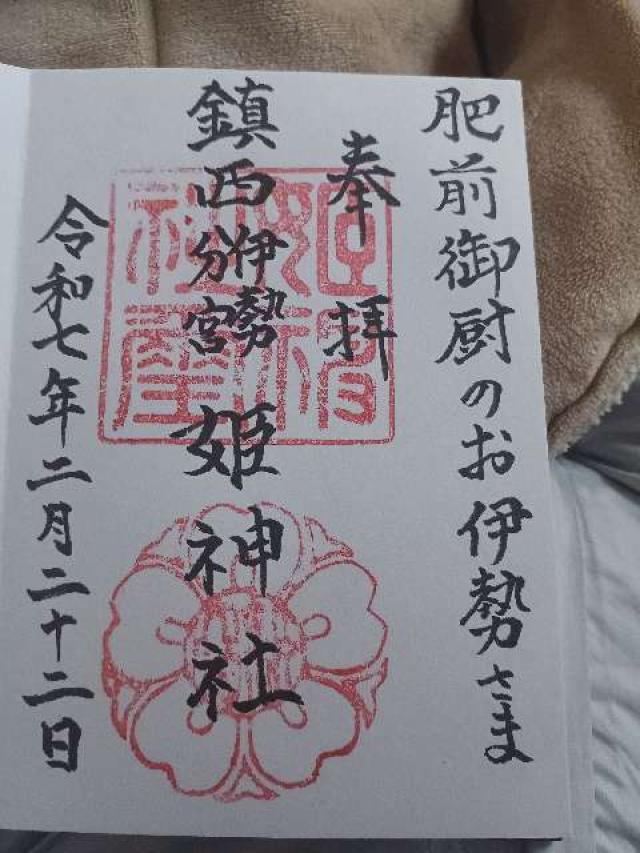 肥前御厨のお伊勢さま
奉拝
鎮西伊勢分宮姫神社
令和七年二月二十二日